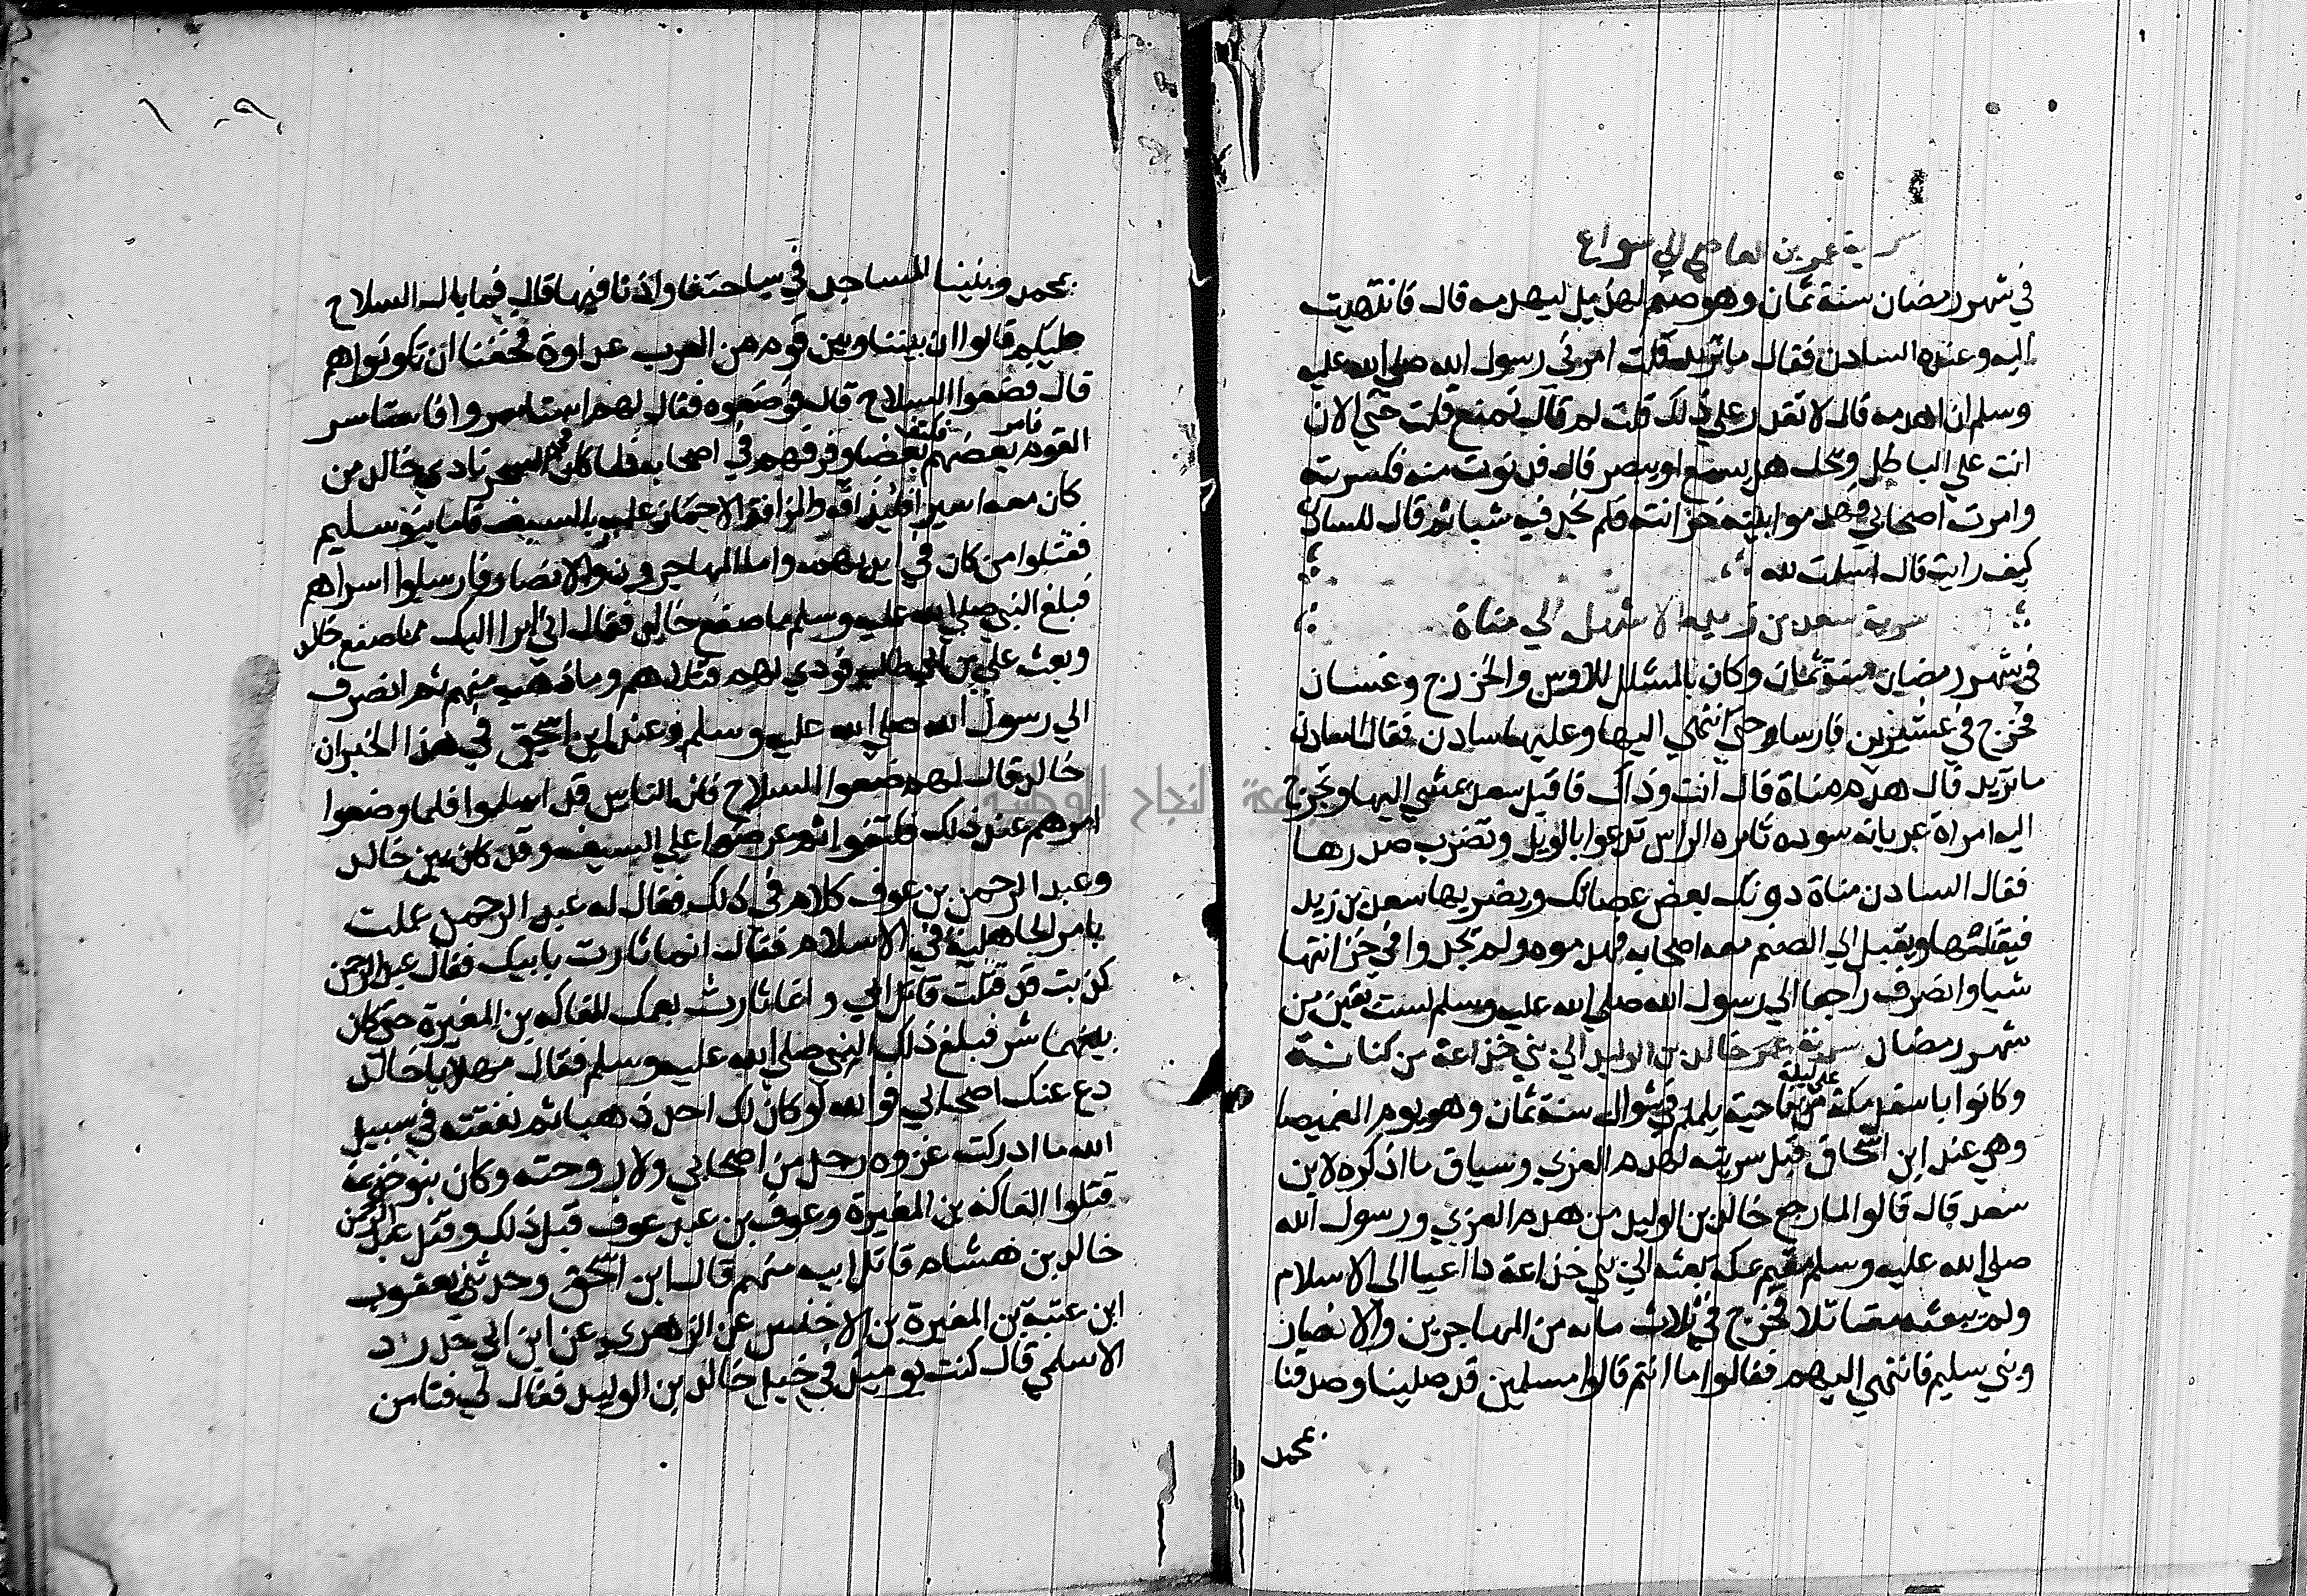 سرية عمرو بن العاصي الي سواع
في شهر رمضان سنة ثمان وهو صنم لهذيل ليهدمه قال فانتهيت
اليه وعنده السادن فقال ما تريد قلت امرني رسول الله صلي الله عليه
وسلم ان اهدمه قال لا تقدر علي ذلك قلت لم قال تمنع قلت حتي الان
انت علي الباطل ويحك هل يسمع او يبصر قال فدنوت منه فكسرته
وامرت اصحابي فهدموا بيته خزانته فلم نجد فيه شيا ثم قال للسادن
كيف رايت قال اسلمت لله
سرية سعد بن زيد الاشهل الي مناة
في شهر رمضان سنة ثمان وكان بالمشلل للاوس والخزرج وغسان
فخرج في عشرين فارسا حتي انتهي اليها وعليها سادن فقال السادن
ما تريد قال هدم مناة قال انت وذاك فاقبل سعد يمشي اليها وتخرج
اليه امراة عريانه سوده ثايره الراس تدعوا بالويل وتضرب صدرها
فقال السادن مناة دونك بعض عصاتك ويضربها سعد بن زيد
فيقتلها ويقبل الي الصنم معه اصحابه فهدموه ولم يجدوا في خزانتها
شيا وانصرف راجعا الي رسول الله صلي الله عليه وسلم لست بقين من
شهر رمضان سرية خالد بن الوليد الي بني خزاعة من كنانة
وكانوا باسفل مكة علي ليلة من ناحية يلملم في شوال سنة ثمان وهو يوم الغميصا
وهي عند ابن اسحاق قبل سريته لهدم العزي وسياق ما اذكره لابن
سعد قال قالوا لما رجع خالد بن الوليد من هدم العزي ورسول الله
صلي الله عليه وسلم مقيم بمكة بعثه الي بني خزاعة داعيا الي الاسلام
ولم يبعثه مقاتلا فخرج في ثلاث مايه من المهاجرين والانصار
وبني سليم فانتهي اليهم فقالوا ما انتم قالوا مسلمين قد صلينا وصدقنا
بمحمد
١٠٩
بمحمد وبنينا المساجد في سياحتنا واذنا فيها قال فما بال السلاح
عليكم قالوا ان بيننا وبين قوم من العرب عداوة فخفنا ان تكونوا هم
قال فضعوا السلاح قال فوضعوه فقال لهم استاسروا فاستاسر
القوم فامر بعضهم فكتف بعضا وفرقهم في اصحابه فلما كان السحر نادي خالد من
كان معه اسير فليذافه والمذافة الاجهاز عليه بالسيف فاما بنو سليم
فقتلوا من كان في ايديهم واما المهاجرون والانصار فارسلوا اسراهم
فبلغ النبي صلي الله عليه وسلم ما صنع خالد فقال اني ابرا اليك مما صنع خالد
وبعث علي بن ابي طالب فودي لهم قتلاهم وما ذهب منهم ثم انصرف
الي رسول الله صلي الله عليه وسلم وعند ابن اسحق في هذا الخبر ان
خالد قال لهم ضعوا السلاح فان الناس قد اسلموا فلما وضعوا
امرهم عند ذلك فكتفوا ثم عرضوا علي السيف وقد كان بين خالد
وعبد الرحمن بن عوف كلام في ذلك فقال له عبد الرحمن عملت
بامر الجاهلية في الاسلام فقال انما ثارت بابيك فقال عبد الرحمن
كذبت قد قتلت قاتل ابي وانما ثارت بعمك الفاكه بن المغيرة حتي كان
بينهما شر فبلغ ذلك النبي صلي الله عليه وسلم فقال مهلا يا خالد
دع عنك اصحابي فوالله لو كان لك احد ذهبا ثم نفقته في سبيل
الله ما ادركت غزوه رجل من اصحابي ولا روحته وكان بنو خزيمة
قتلوا الفاكه بن المغيرة وعوف بن عبد عوف قبل ذلك وقتل عبد الرحمن
خالد بن هشام قاتل ابيه منهم قال ابن اسحق وحدثني يعقوب
ابن عتبة بن المغيرة بن الاخنس عن الزهري عن ابن ابي حدرد
الاسلمي قال كنت يوميذ في خيل خالد بن الوليد فقال لي فتا من